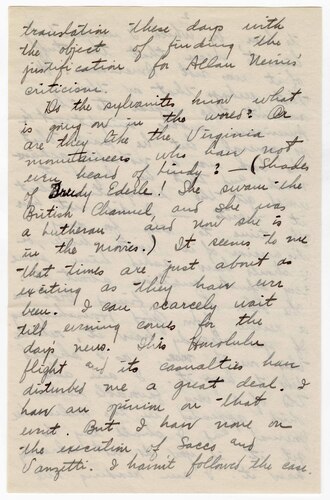 translation these days with
the object of finding the
justification for Allan Nevins'
criticism.
Do the sylvanites know what
is going on in the world? Or
are they like the Virginia
mountaineers who have not
even heard of Lindy? — (Shades
of Trudy Ederle! She swam the
British Channel, and she was
a Lutheran and now she is
in the movies.) It seems to me
that times are just about as
exciting as they have ever
been. I can scarcely wait
till evening comes for the
day's news. This Honolulu
flight and its casualties have
disturbed me a great deal. I
have an opinion on that
event. But I have none on
the execution of Sacco and
Vanzetti. I haven't followed the case.